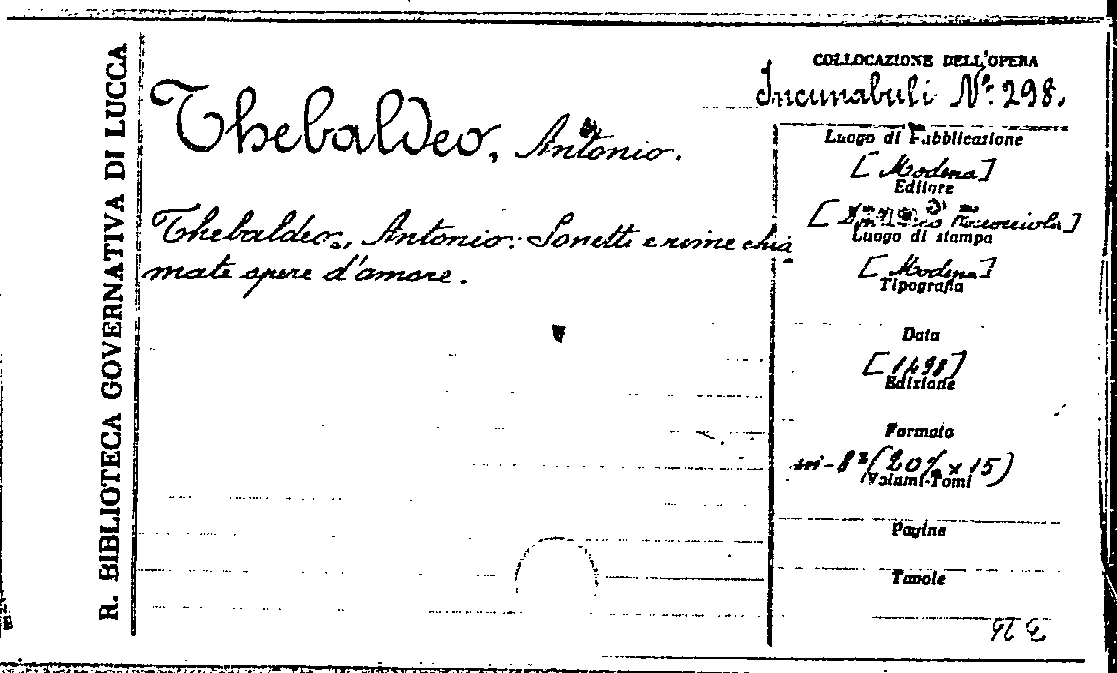 R. BIBLIOTECA GOVERNATIVA DI LUCCA
Thebaldeo, Antonio.
Thebaldeo, Antonio: Sonetti e rime chia
mate opere d'amore.
COLLOCAZIONE DELL'OPERA
Incunabuli Nº. 298.
Luogo di Pubblicazione
[Modena]
Editore
[
Luogo di stampa
[Modena]
Tipografia
Data
[1498]
Edizione
Formato
in-8º (20½ x 15)
Volumi-Tomi
Pagine
Tavole